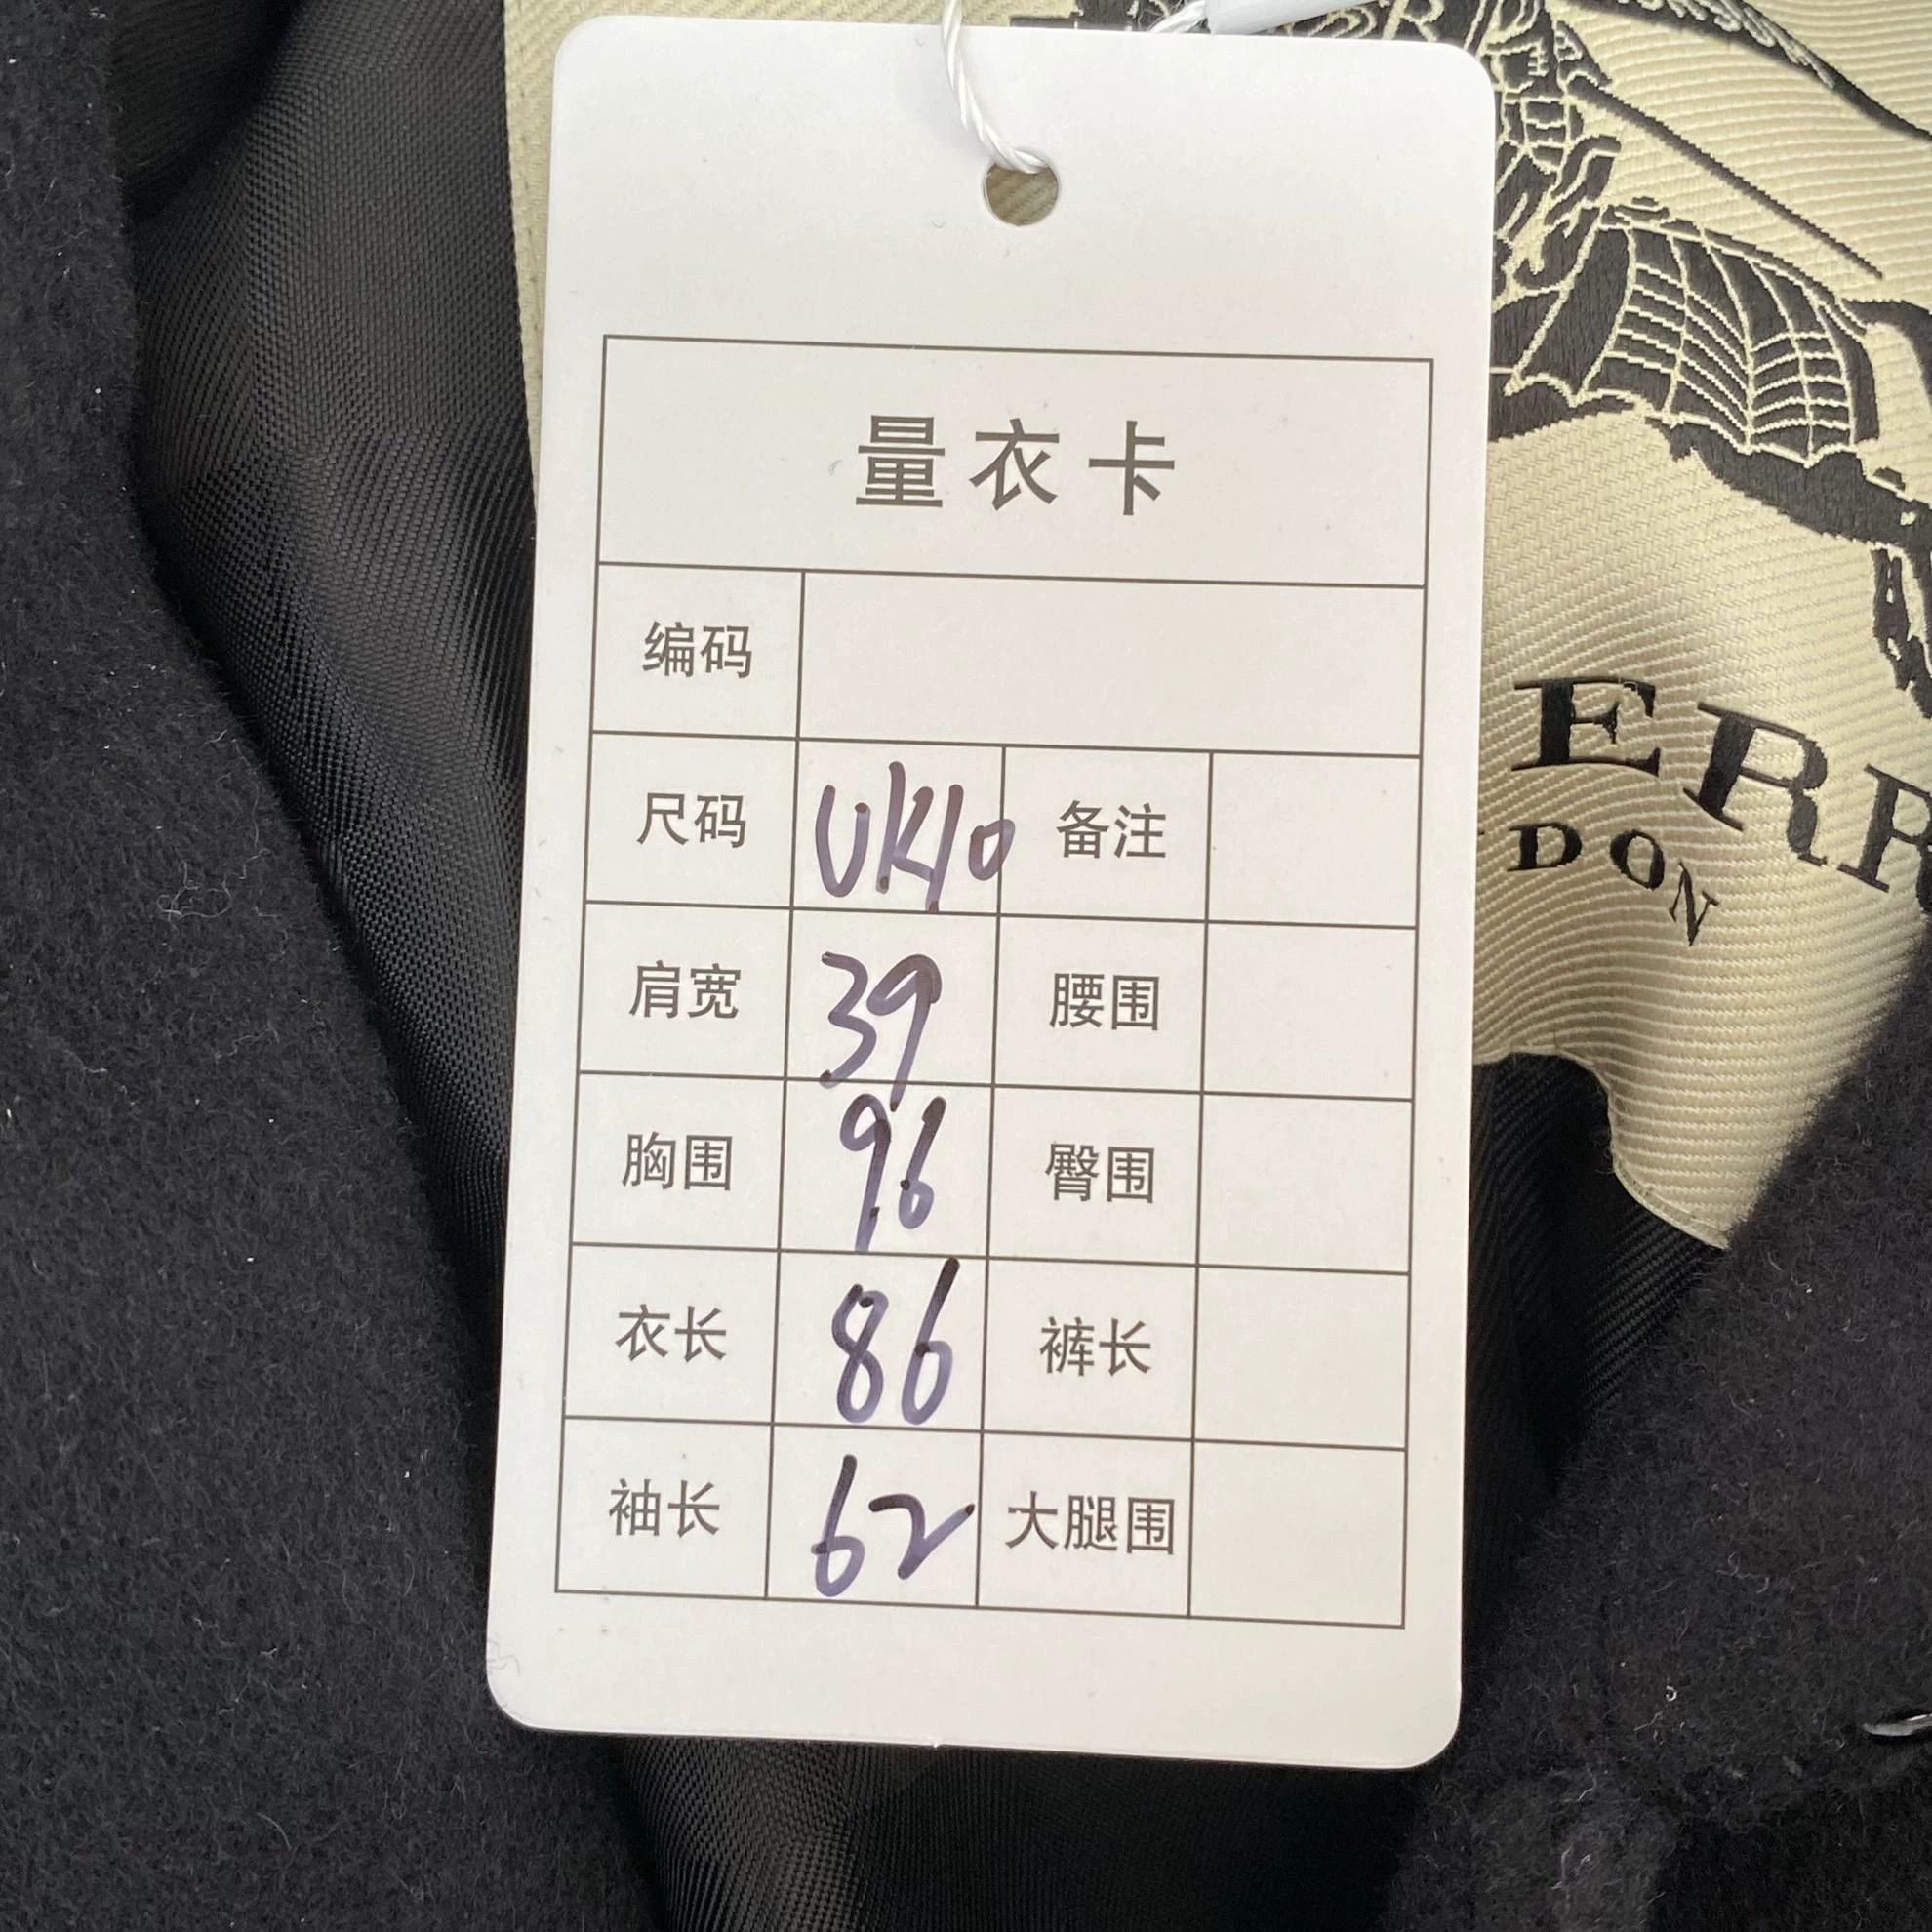 量衣卡
编码
尺码 UK10 备注
肩宽 39 腰围
胸围 96 臀围
衣长 86 裤长
袖长 62 大腿围
ERR
DON